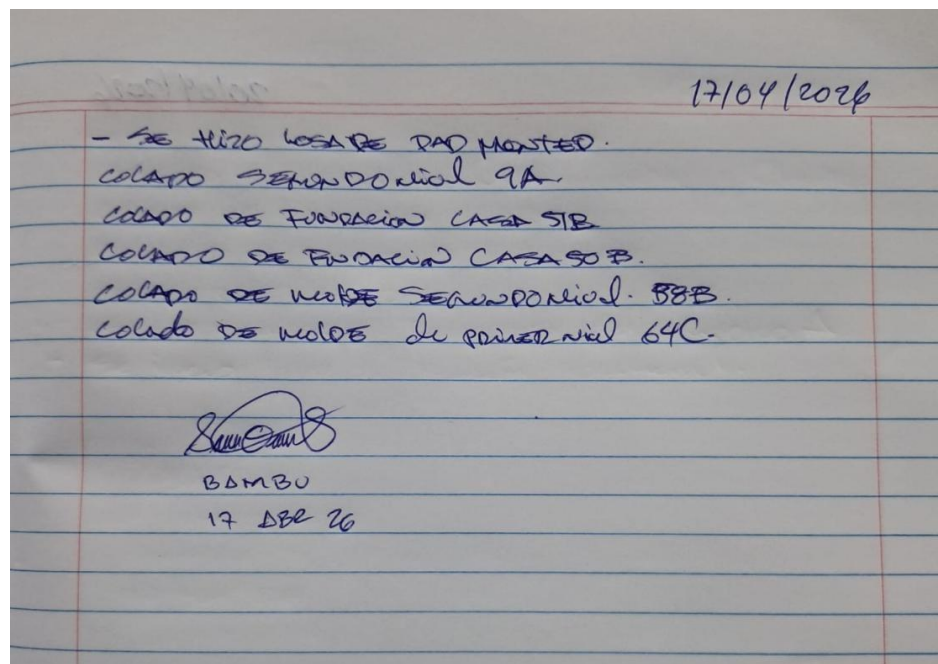 17/04/2026
- SE HIZO LOSA DE PAD MONTED.
COLADO SEGUNDO nivel 9A.
COLADO DE FUNDACION CASA 51B
COLADO DE FUDACION CASA 50 B.
COLADO DE MOLDE SEGUNDO nivel. 58B.
Colado DE MOLDE de PRIMER nivel 64C.
BAMBU
17 ABR 26